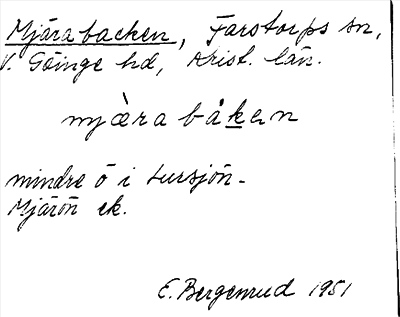 Mjärabacken, Farstorps sn,
V. Göinge hd, Krist. län.
mjæ̀ra båken
mindre ö i Lursjön.
Mjärön ek.
E. Bergenrud 1951